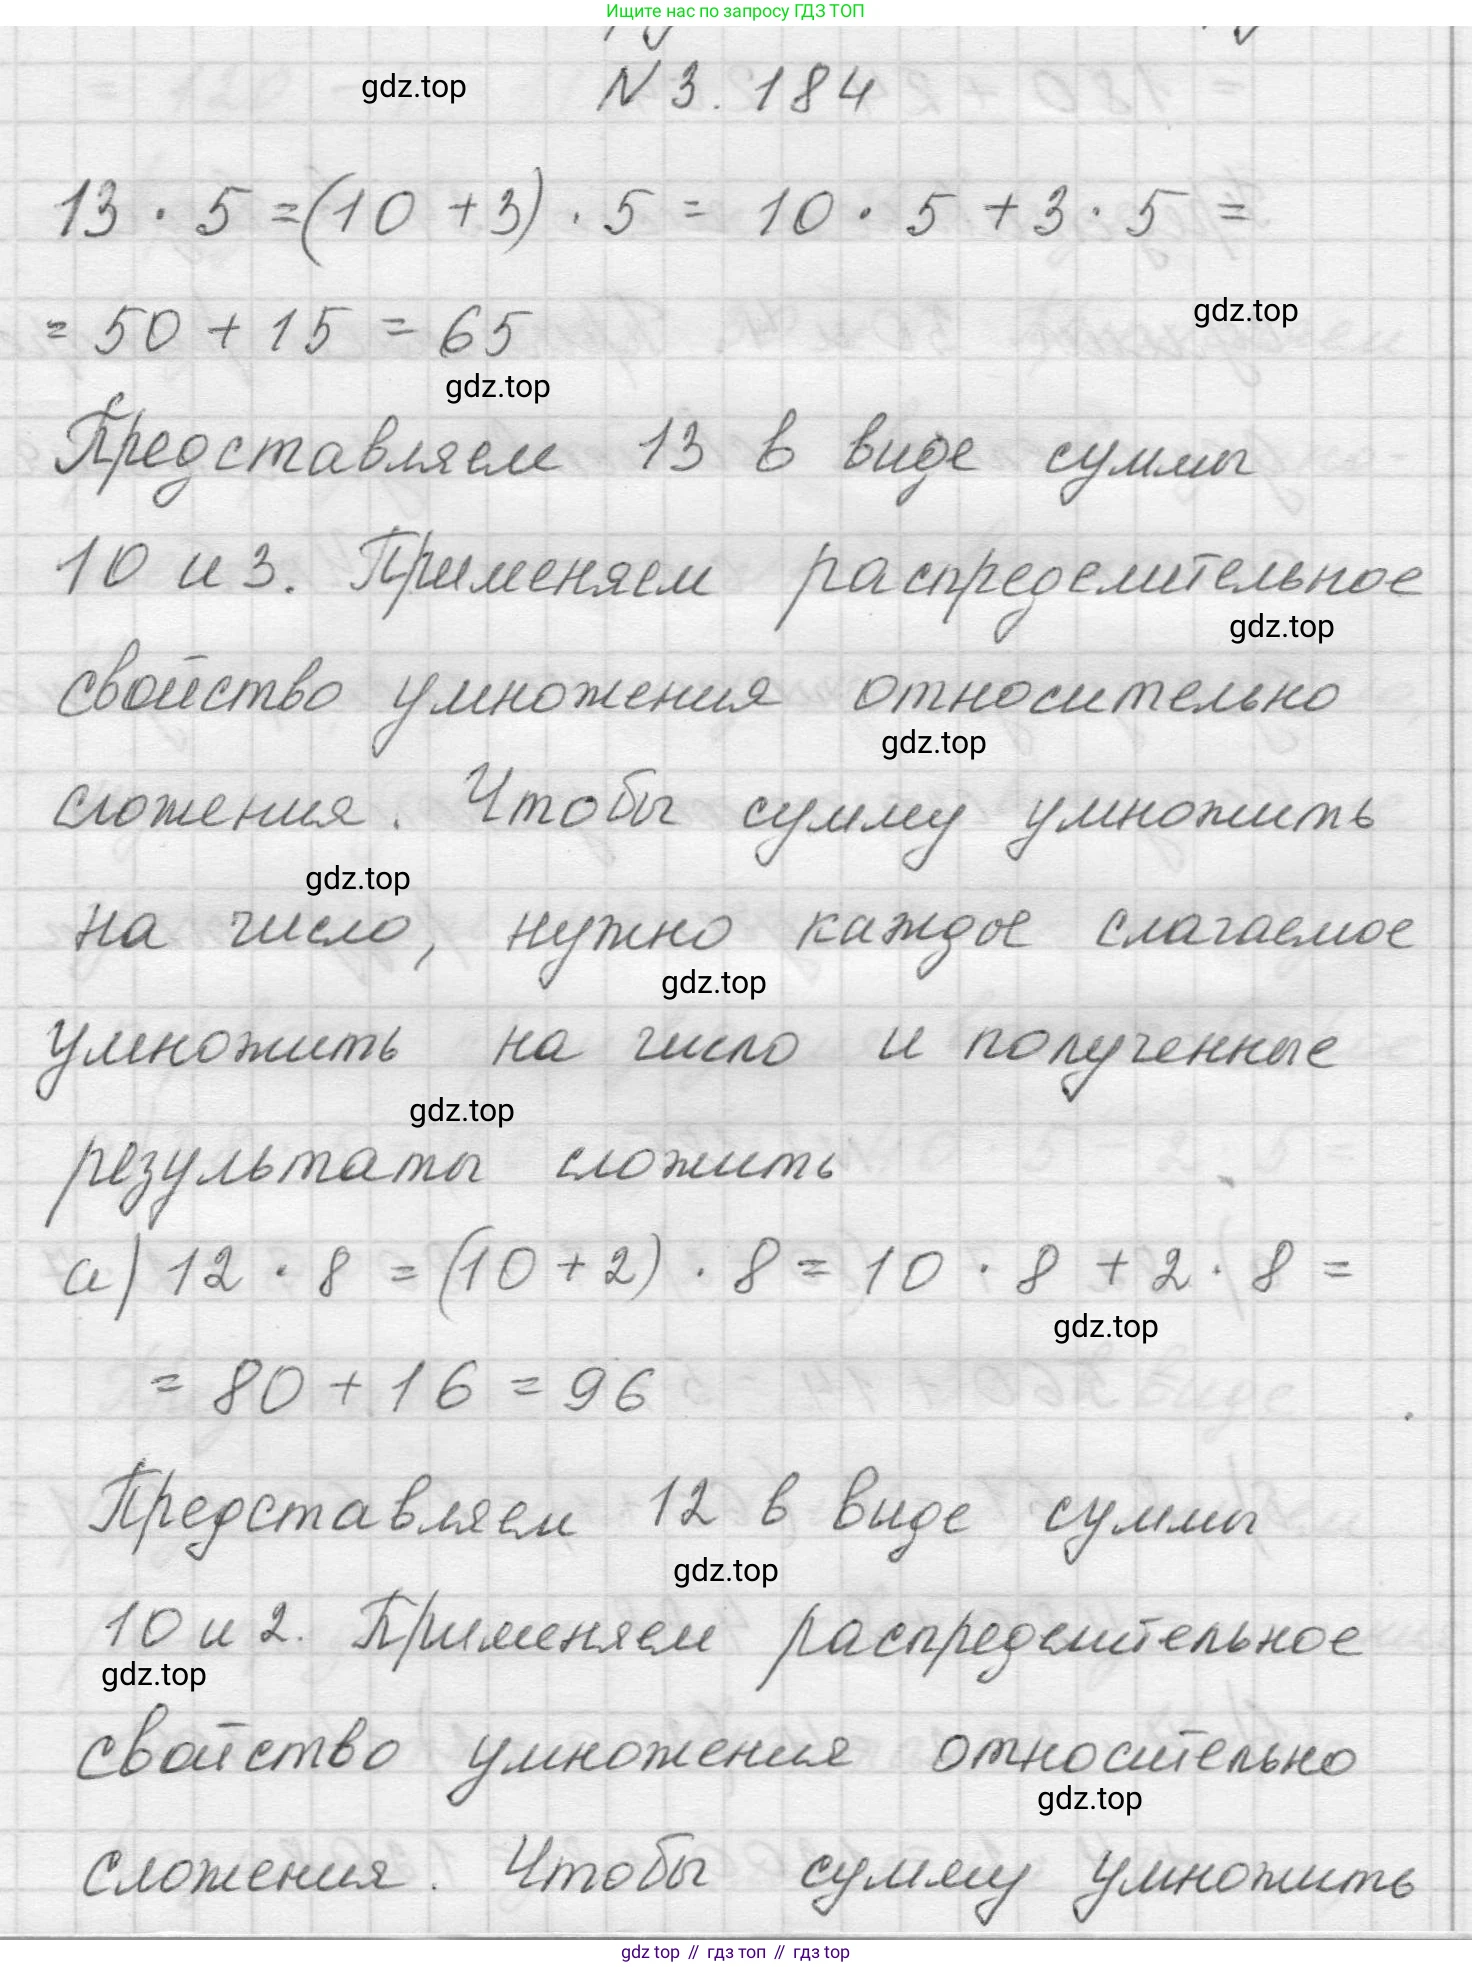 Ищите нас по запросу ГДЗ ТОП
gdz.top
N 3.184
13 · 5 = (10 + 3) · 5 = 10 · 5 + 3 · 5 =
gdz.top
= 50 + 15 = 65
gdz.top
Представляем 13 в виде суммы
10 и 3. Применяем распределительное
gdz.top
свойство умножения относительно
gdz.top
сложения. Чтобы сумму умножить
gdz.top
на число, нужно каждое слагаемое
gdz.top
умножить на число и полученные
gdz.top
результаты сложить
а) 12 · 8 = (10 + 2) · 8 = 10 · 8 + 2 · 8 =
gdz.top
= 80 + 16 = 96
Представляем 12 в виде суммы
gdz.top
10 и 2. Применяем распределительное
gdz.top
свойство умножения относительно
gdz.top
сложения. Чтобы сумму умножить
gdz top // гдз топ // гдз top